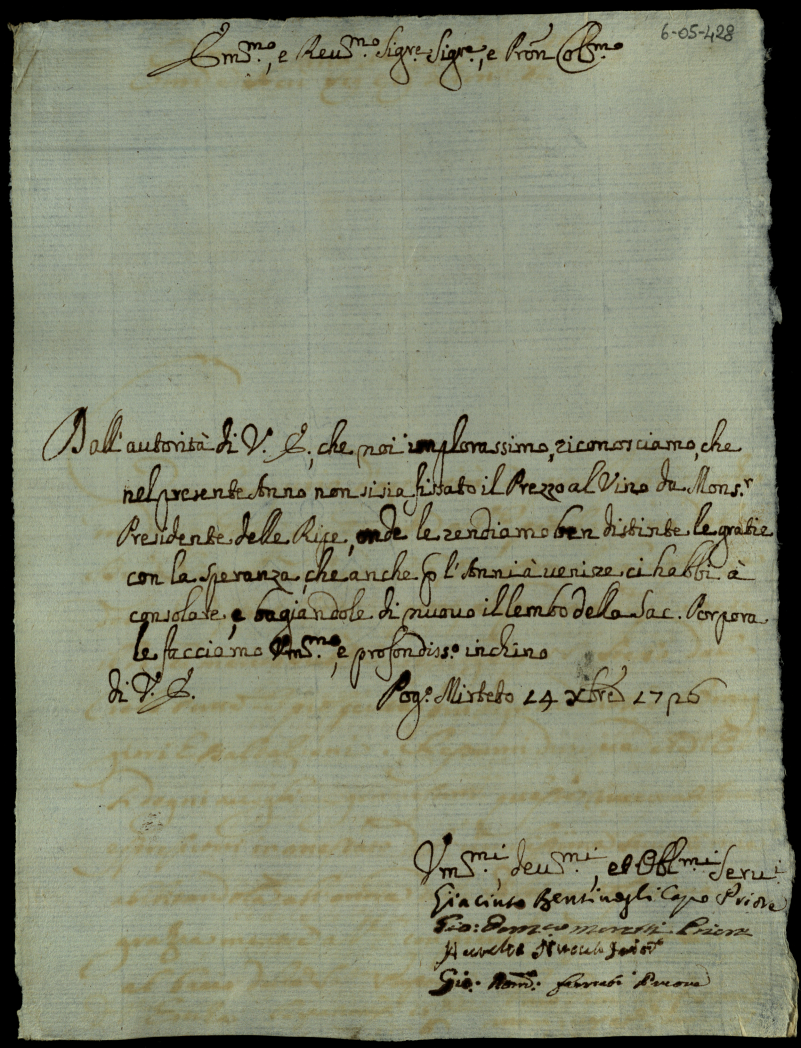 6-05-428
Em.mo, e Reu.mo Sig.re Sig.re, e Pron Col.mo
Dall'autorità di V. E., che noi implorassimo, riconosciamo, che
nel presente Anno non si sia fissato il Prezzo al Vino da Mons.r
Presidente delle Ripe, onde le rendiamo ben distinte le gratie
con la speranza, che anche p l'Anni à venire ci habbi à
consolare, e bagiandole di nuouo il lembo della Sac. Porpora
le facciamo Vm.mo, e profondiss.o inchino
di V. E.
Pog.o Mirteto 14 Xbre 1726
Vm.mi, deu.mi, et Obl.mi Serui
Giacinto Bentiuegli Capo Priore
Gio: Priore
Gio. Priore